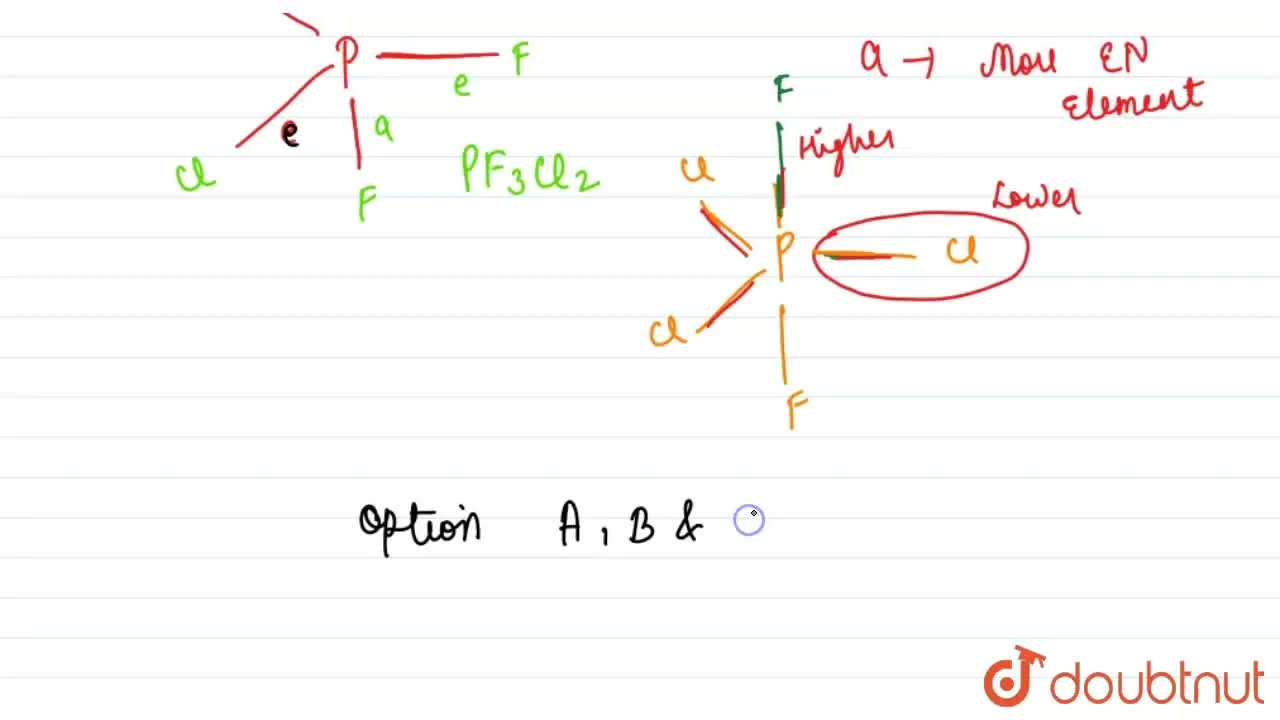 P F
e
a
e
Cl
F
PF3Cl2
a → More EN
Element
F
Higher
Cl
Lower
P Cl
Cl
F
Option A, B &
doubtnut